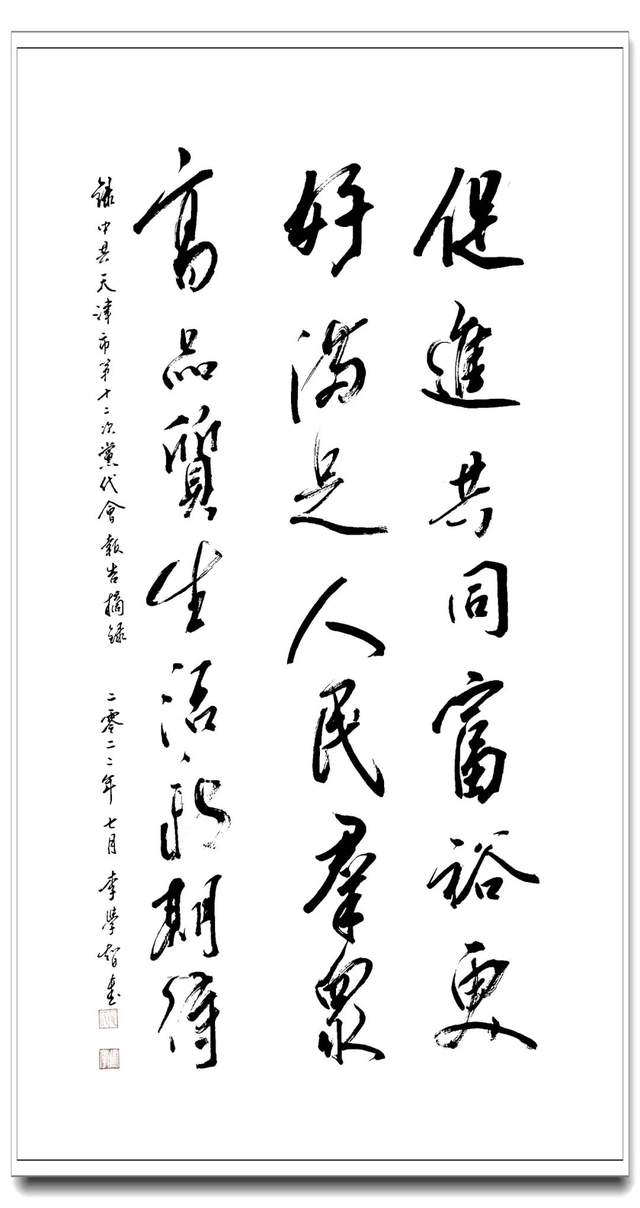 促進共同富裕更
好滿足人民羣眾
高品質生活新期待
錄中共天津市第十二次黨代會報告摘錄 二零二二年七月李學智書